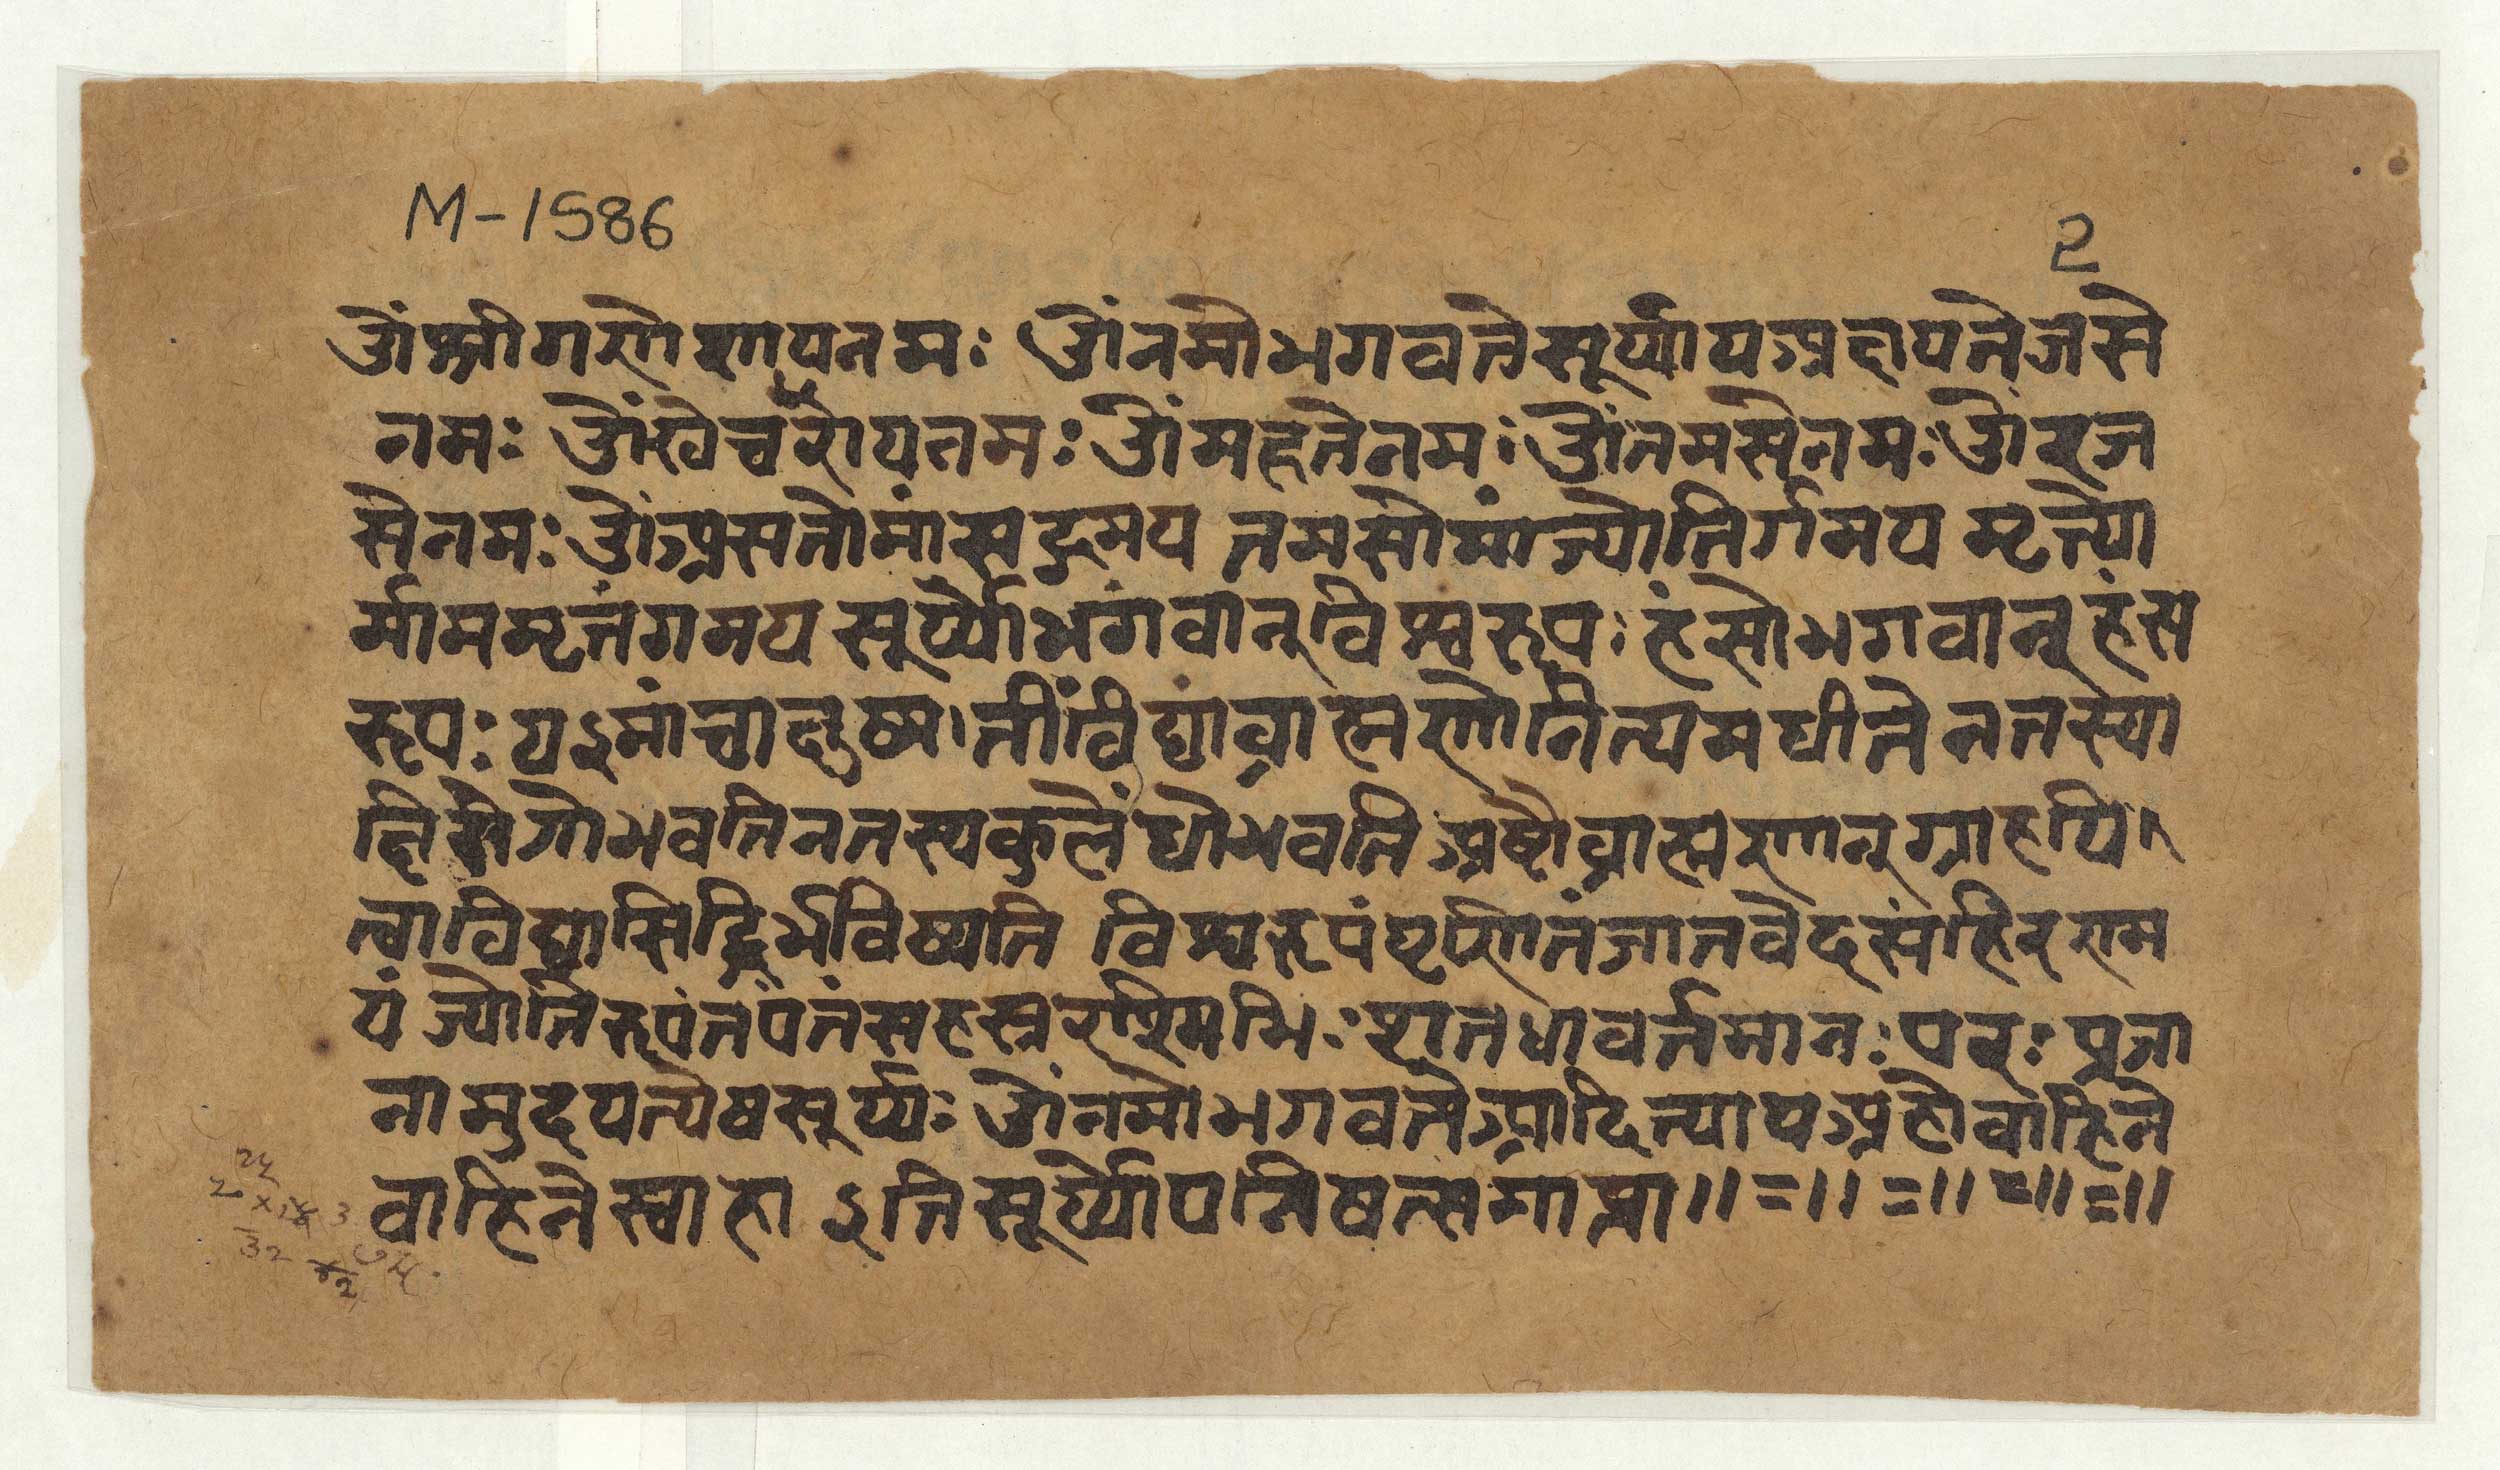 M-1586
२
ओंश्रीगणेशायनमः ओंनमोभगवतेसूर्य्यायअक्षयतेजसे
नमः ओंखेचरायनमः ओंमहतेनमः ओंतमसेनमः ओंरज
सेनमः ओंअसतोमांसद्गमय तमसोमांज्योतिर्गमय मृत्यो
र्मामामृतंगमय सूर्य्योभगवान्विश्वरूपः हंसोभगवान्हंस
रूपः यइमांचाक्षुष्मतींविद्यांब्राह्मणोनित्यमधीते नतस्या
क्षिरोगोभवतिनतस्यकुलेंधोभवति अष्टौब्राह्मणान्ग्राहयि
त्वाविद्यासिद्धिर्भविष्यति विश्वरूपंघृणिनंजातवेदसंहिरण्म
यं ज्योतिरूपंतपंतंसहस्ररश्मिभिः शतधावर्त्तमानः परः प्रजा
नामुदयत्येषसूर्य्यः ओंनमोभगवतेआदित्यायअहोवाहिने
वाहिनेस्वाहा इतिसूर्य्योपनिषत्समाप्ता ॥=॥=॥=॥=॥